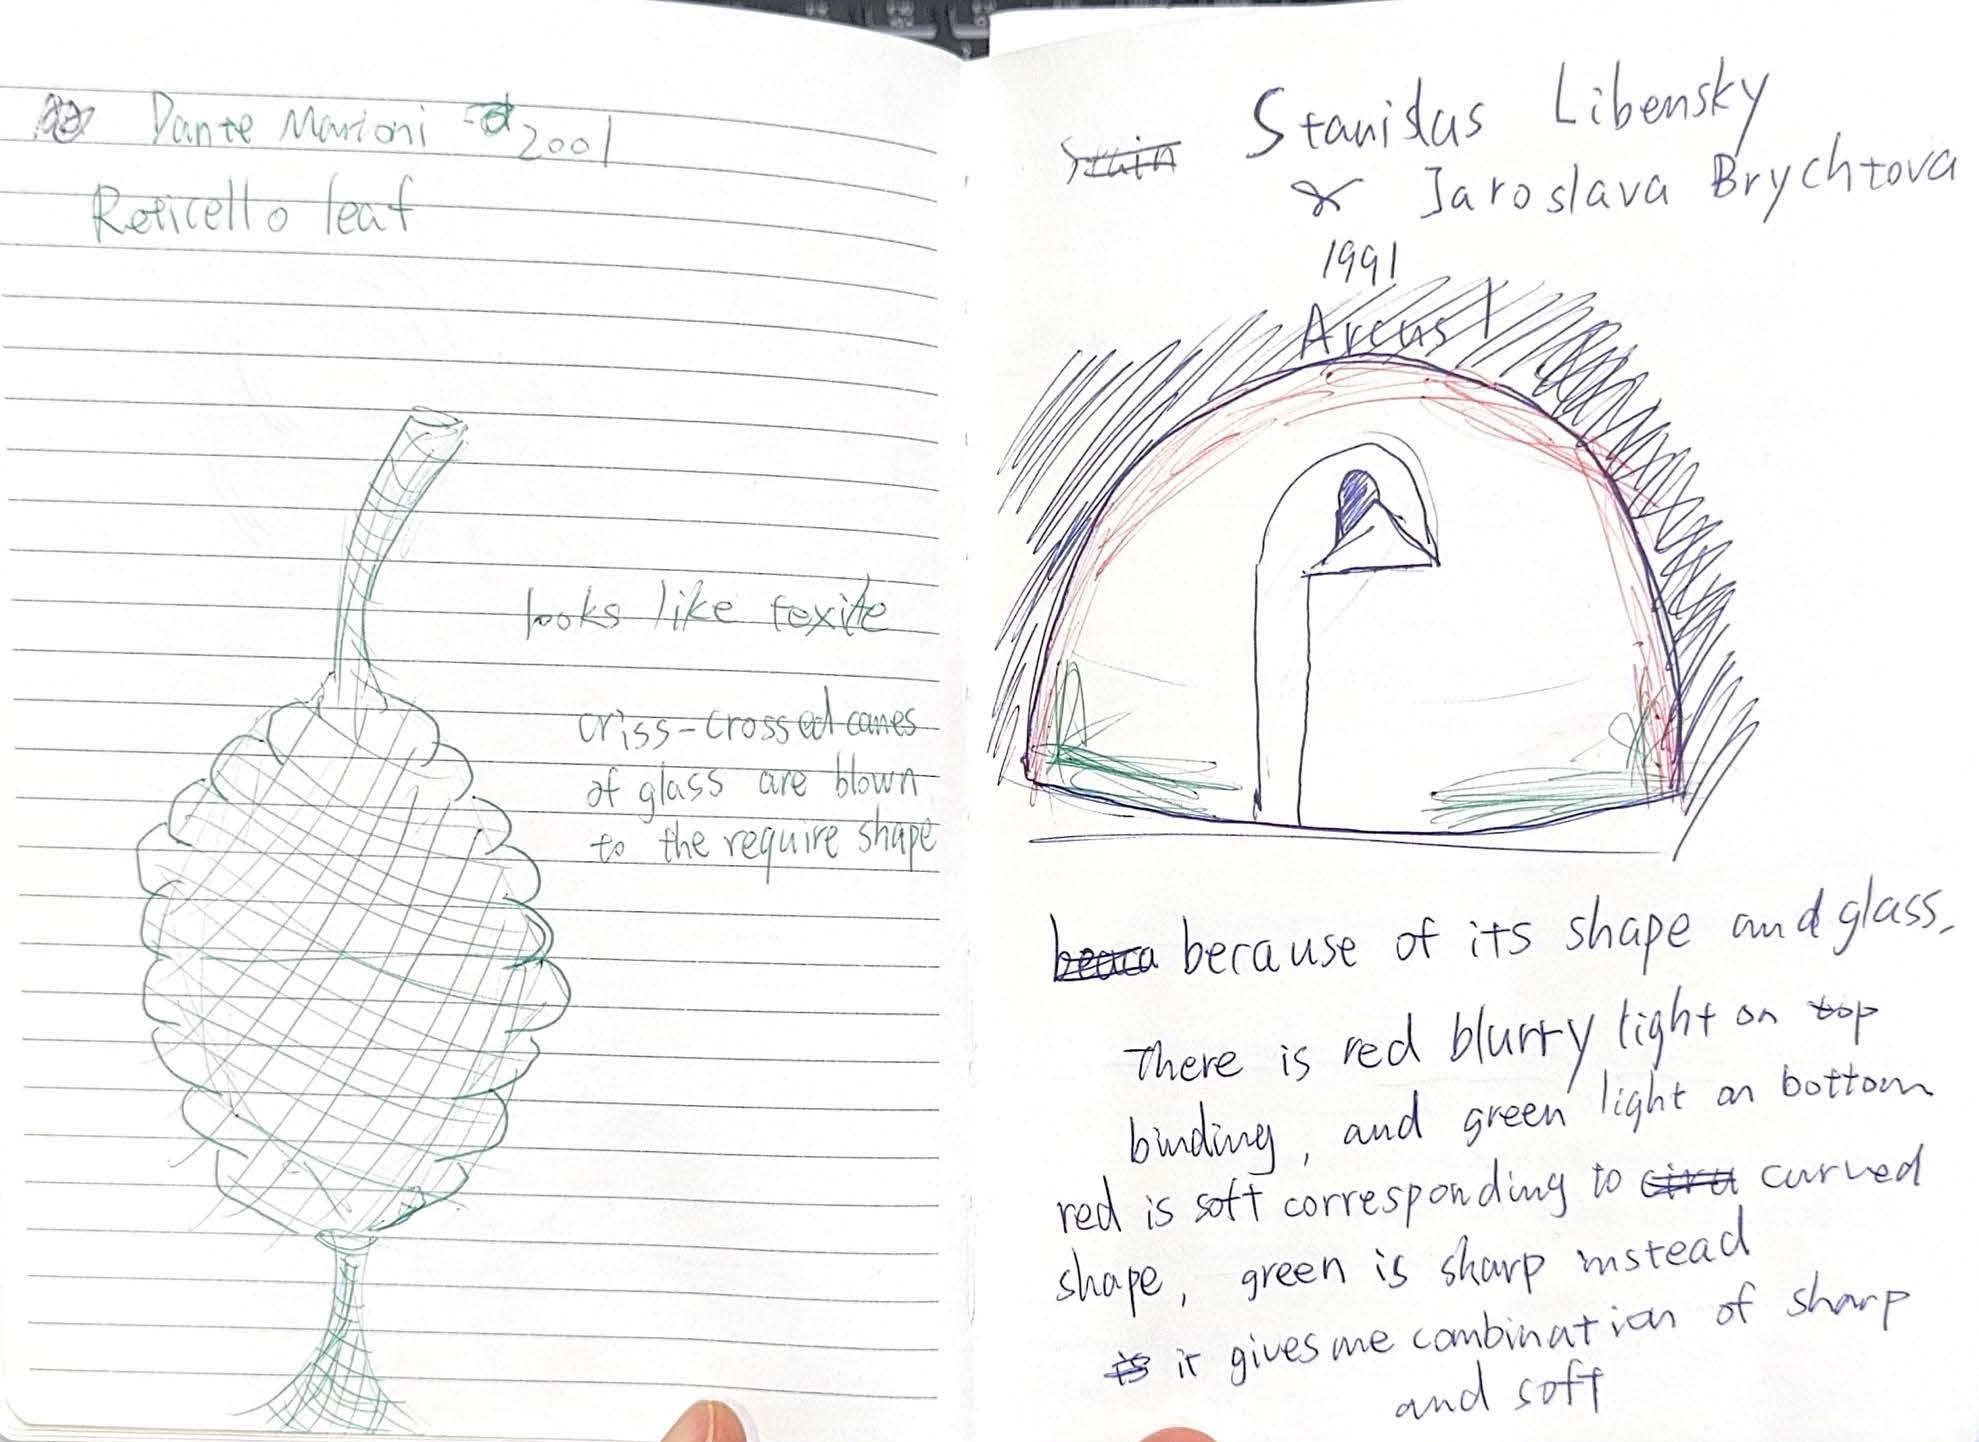 Dante Marioni 2001
Reticello leaf
looks like texite
criss-crossed canes
of glass are blown
to the require shape
Stanidas Libensky
& Jaroslava Brychtova
1991
Arcus 1
because of its shape and glass,
There is red blurry light on top
binding, and green light on bottom
red is soft corresponding to curved
shape, green is sharp instead
it gives me combination of sharp
and soft